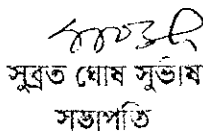 সুব্রত ঘোষ সুর্ভাষ
সভাপতি